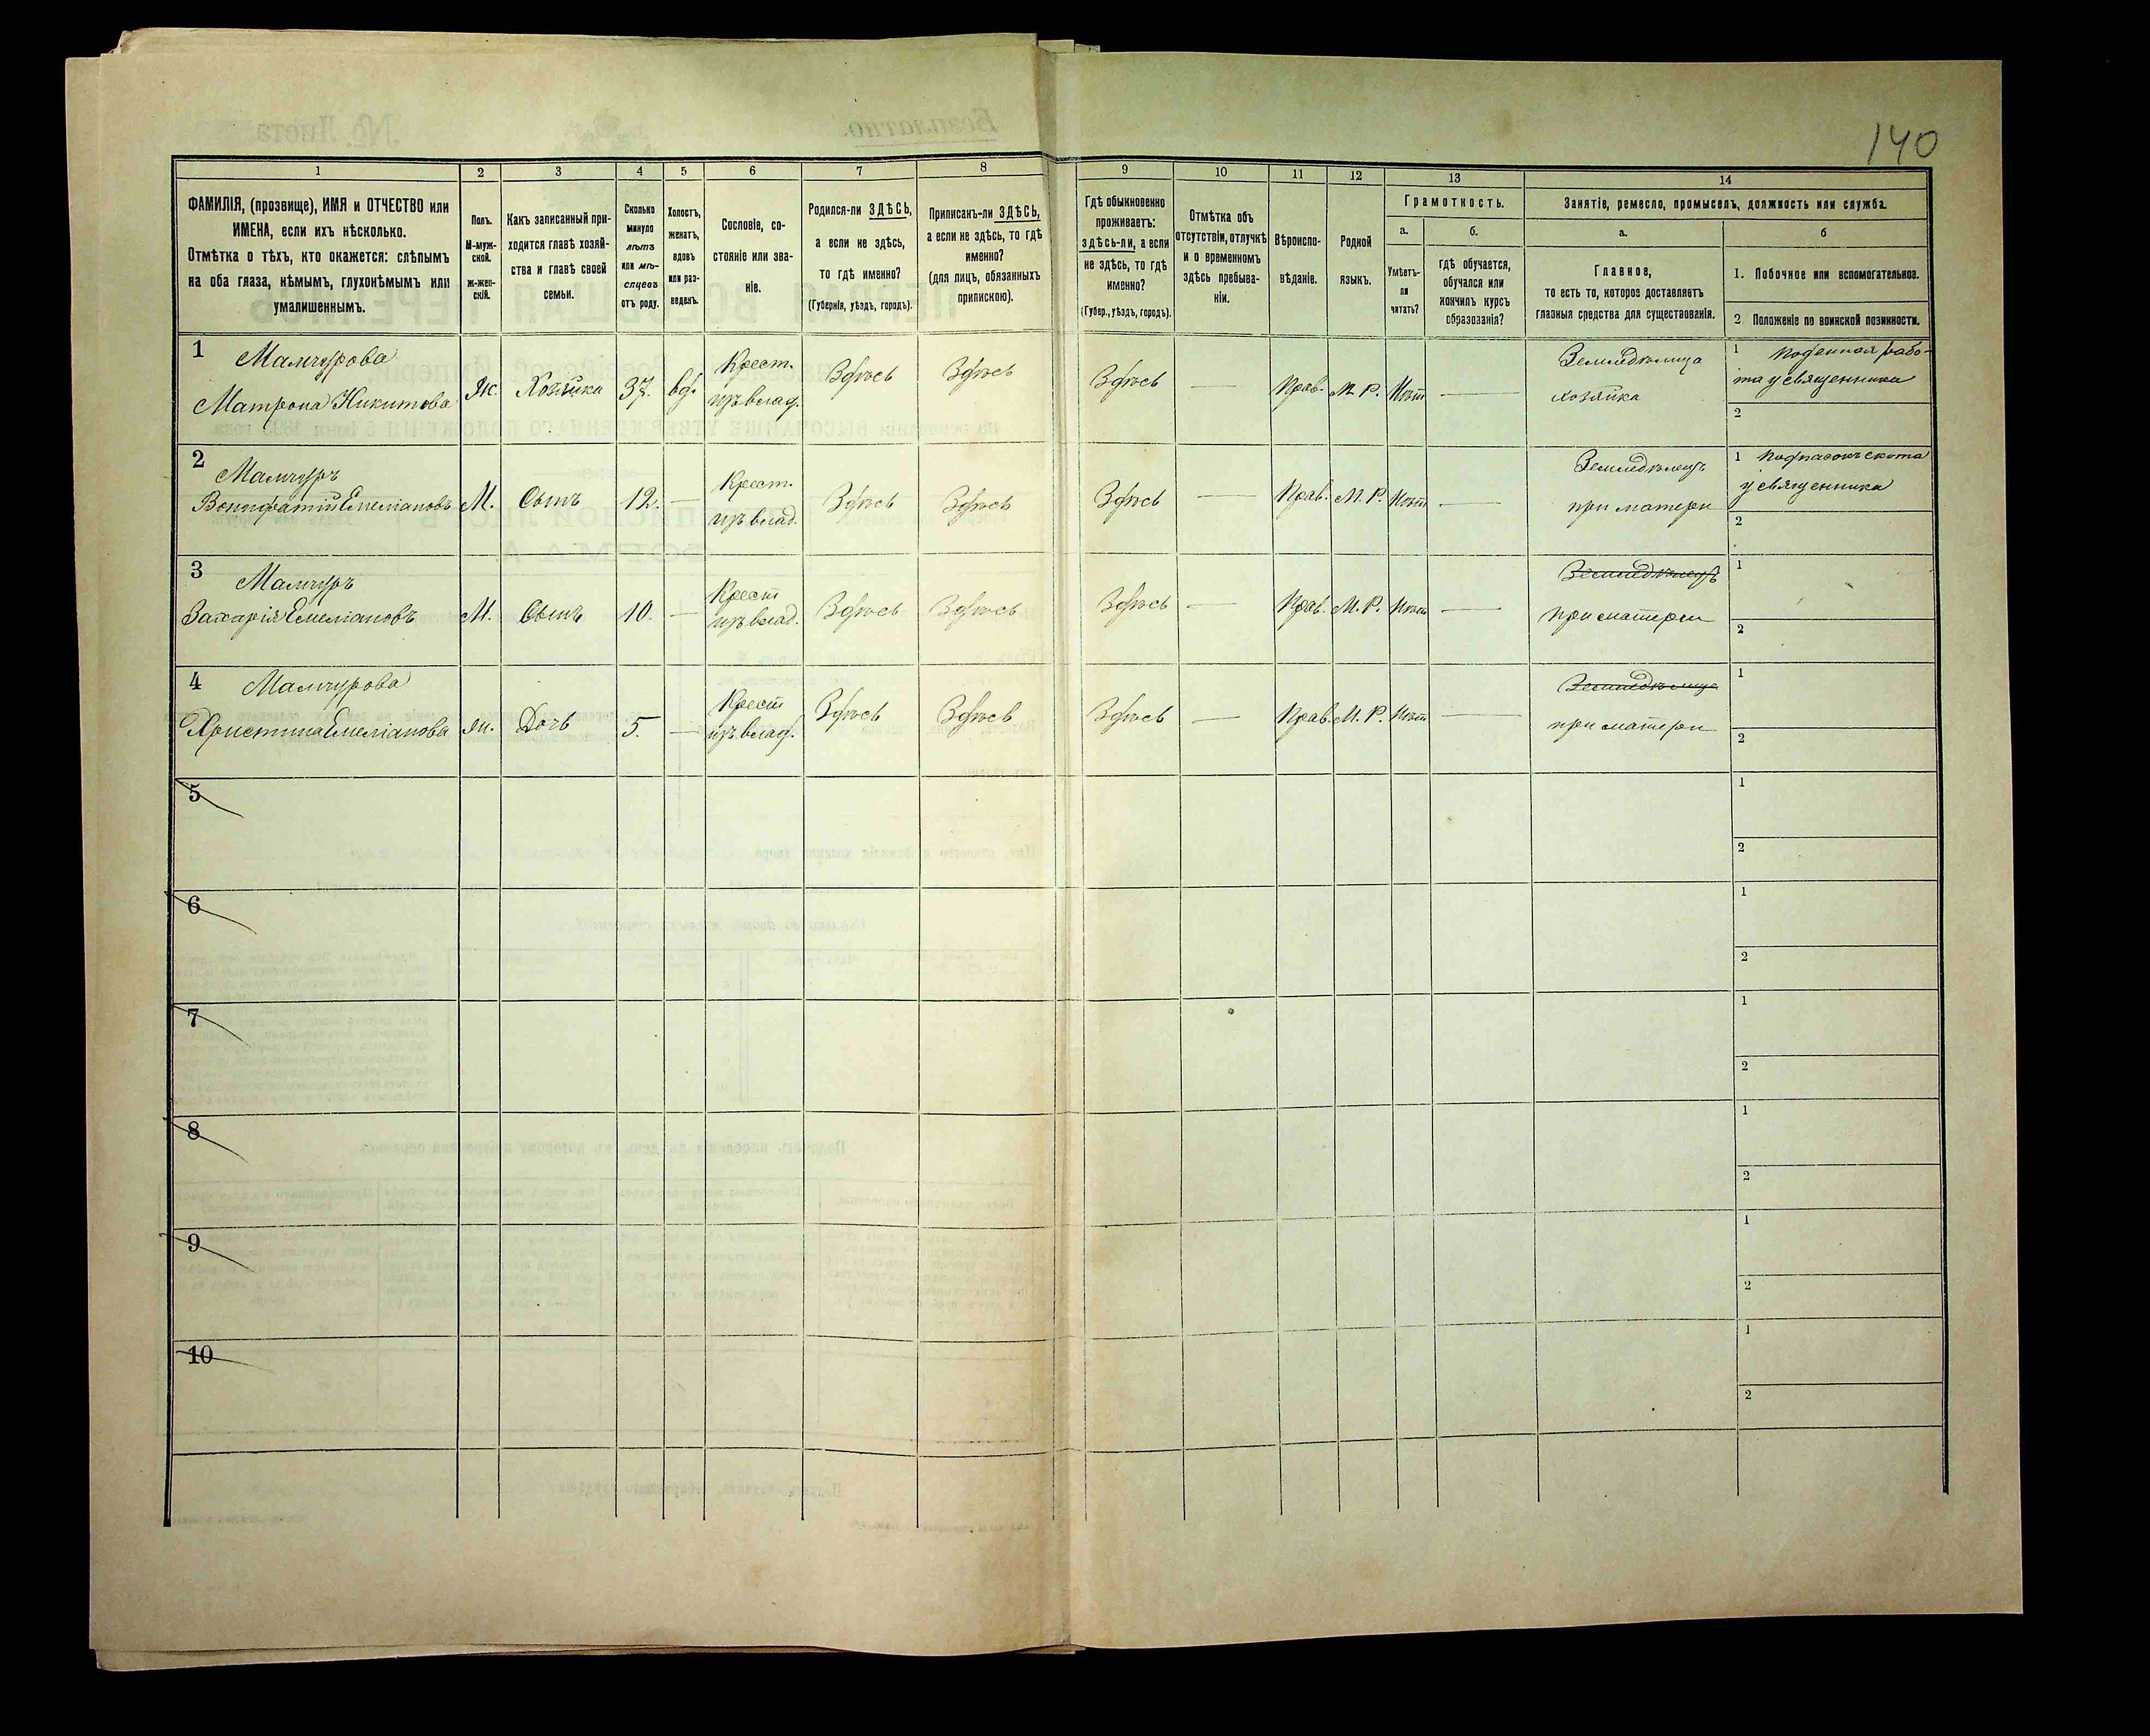 140
1
2
3
4
5
6
7
8
9
10
11
12
13
14
ФАМИЛІЯ, (прозвище), ИМЯ и ОТЧЕСТВО или
ИМЕНА, если ихъ нѣсколько.
Отмѣтка о тѣхъ, кто окажется: слѣпымъ
на оба глаза, нѣмымъ, глухонѣмымъ или
умалишеннымъ.
Полъ.
М-муж-
ской.
ж-жен-
скій.
Какъ записанный при-
ходится главѣ хозяй-
ства и главѣ своей
семьи.
Сколько
минуло
лѣтъ
или мѣ-
сяцевъ
отъ роду.
Холостъ,
женатъ,
вдовъ
или раз-
веденъ.
Сословіе, со-
стояніе или зва-
ніе.
Родился-ли ЗДѢСЬ,
а если не здѣсь,
то гдѣ именно?
(Губернія, уѣздъ, городъ).
Приписанъ-ли ЗДѢСЬ,
а если не здѣсь, то гдѣ
именно?
(для лицъ, обязанныхъ
припискою).
Гдѣ обыкновенно
проживаетъ:
здѣсь-ли, а если
не здѣсь, то гдѣ
именно?
(Губер., уѣздъ, городъ).
Отмѣтка объ
отсутствіи, отлучкѣ
и о временномъ
здѣсь пребыва-
ніи.
Вѣроиспо-
вѣданіе.
Родной
языкъ.
Грамотность.
а.
Умѣетъ-
ли
читать?
б.
гдѣ обучается,
обучался или
кончилъ курсъ
образованія?
Занятіе, ремесло, промыселъ, должность или служба.
а.
Главное,
то есть то, которое доставляетъ
главныя средства для существованія.
б
1. Побочное или вспомогательное.
2 Положеніе по воинской повинности.
1 Мамчурова
Матрона Никитова
Ж.
Хозяйка
37.
вд.
Крест.
изъ влад.
Здѣсь
Здѣсь
Здѣсь
—
Прав.
М. Р.
Нѣт
—
Земледѣлица
хозяйка
1 Поденная рабо-
та у священника
2
2 Мамчуръ
Вонифатій Емеліановъ
М.
Сынъ
12.
—
Крест.
изъ влад.
Здѣсь
Здѣсь
Здѣсь
—
Прав.
М. Р.
Нѣт
—
Земледѣлецъ
при матери
1 Подпасокъ скота
у священника
2
3 Мамчуръ
Захарія Емеліановъ
М.
Сынъ
10.
—
Крест
изъ влад.
Здѣсь
Здѣсь
Здѣсь
—
Прав.
М. Р.
Нѣт
—
Земледѣлецъ
при матери
1
2
4 Мамчурова
Христина Емеліанова
Ж.
Дочь
5.
—
Крест
изъ влад.
Здѣсь
Здѣсь
Здѣсь
—
Прав.
М. Р.
Нѣт
—
Земледѣлица
при матери
1
2
5
1
2
6
1
2
7
1
2
8
1
2
9
1
2
10
1
2